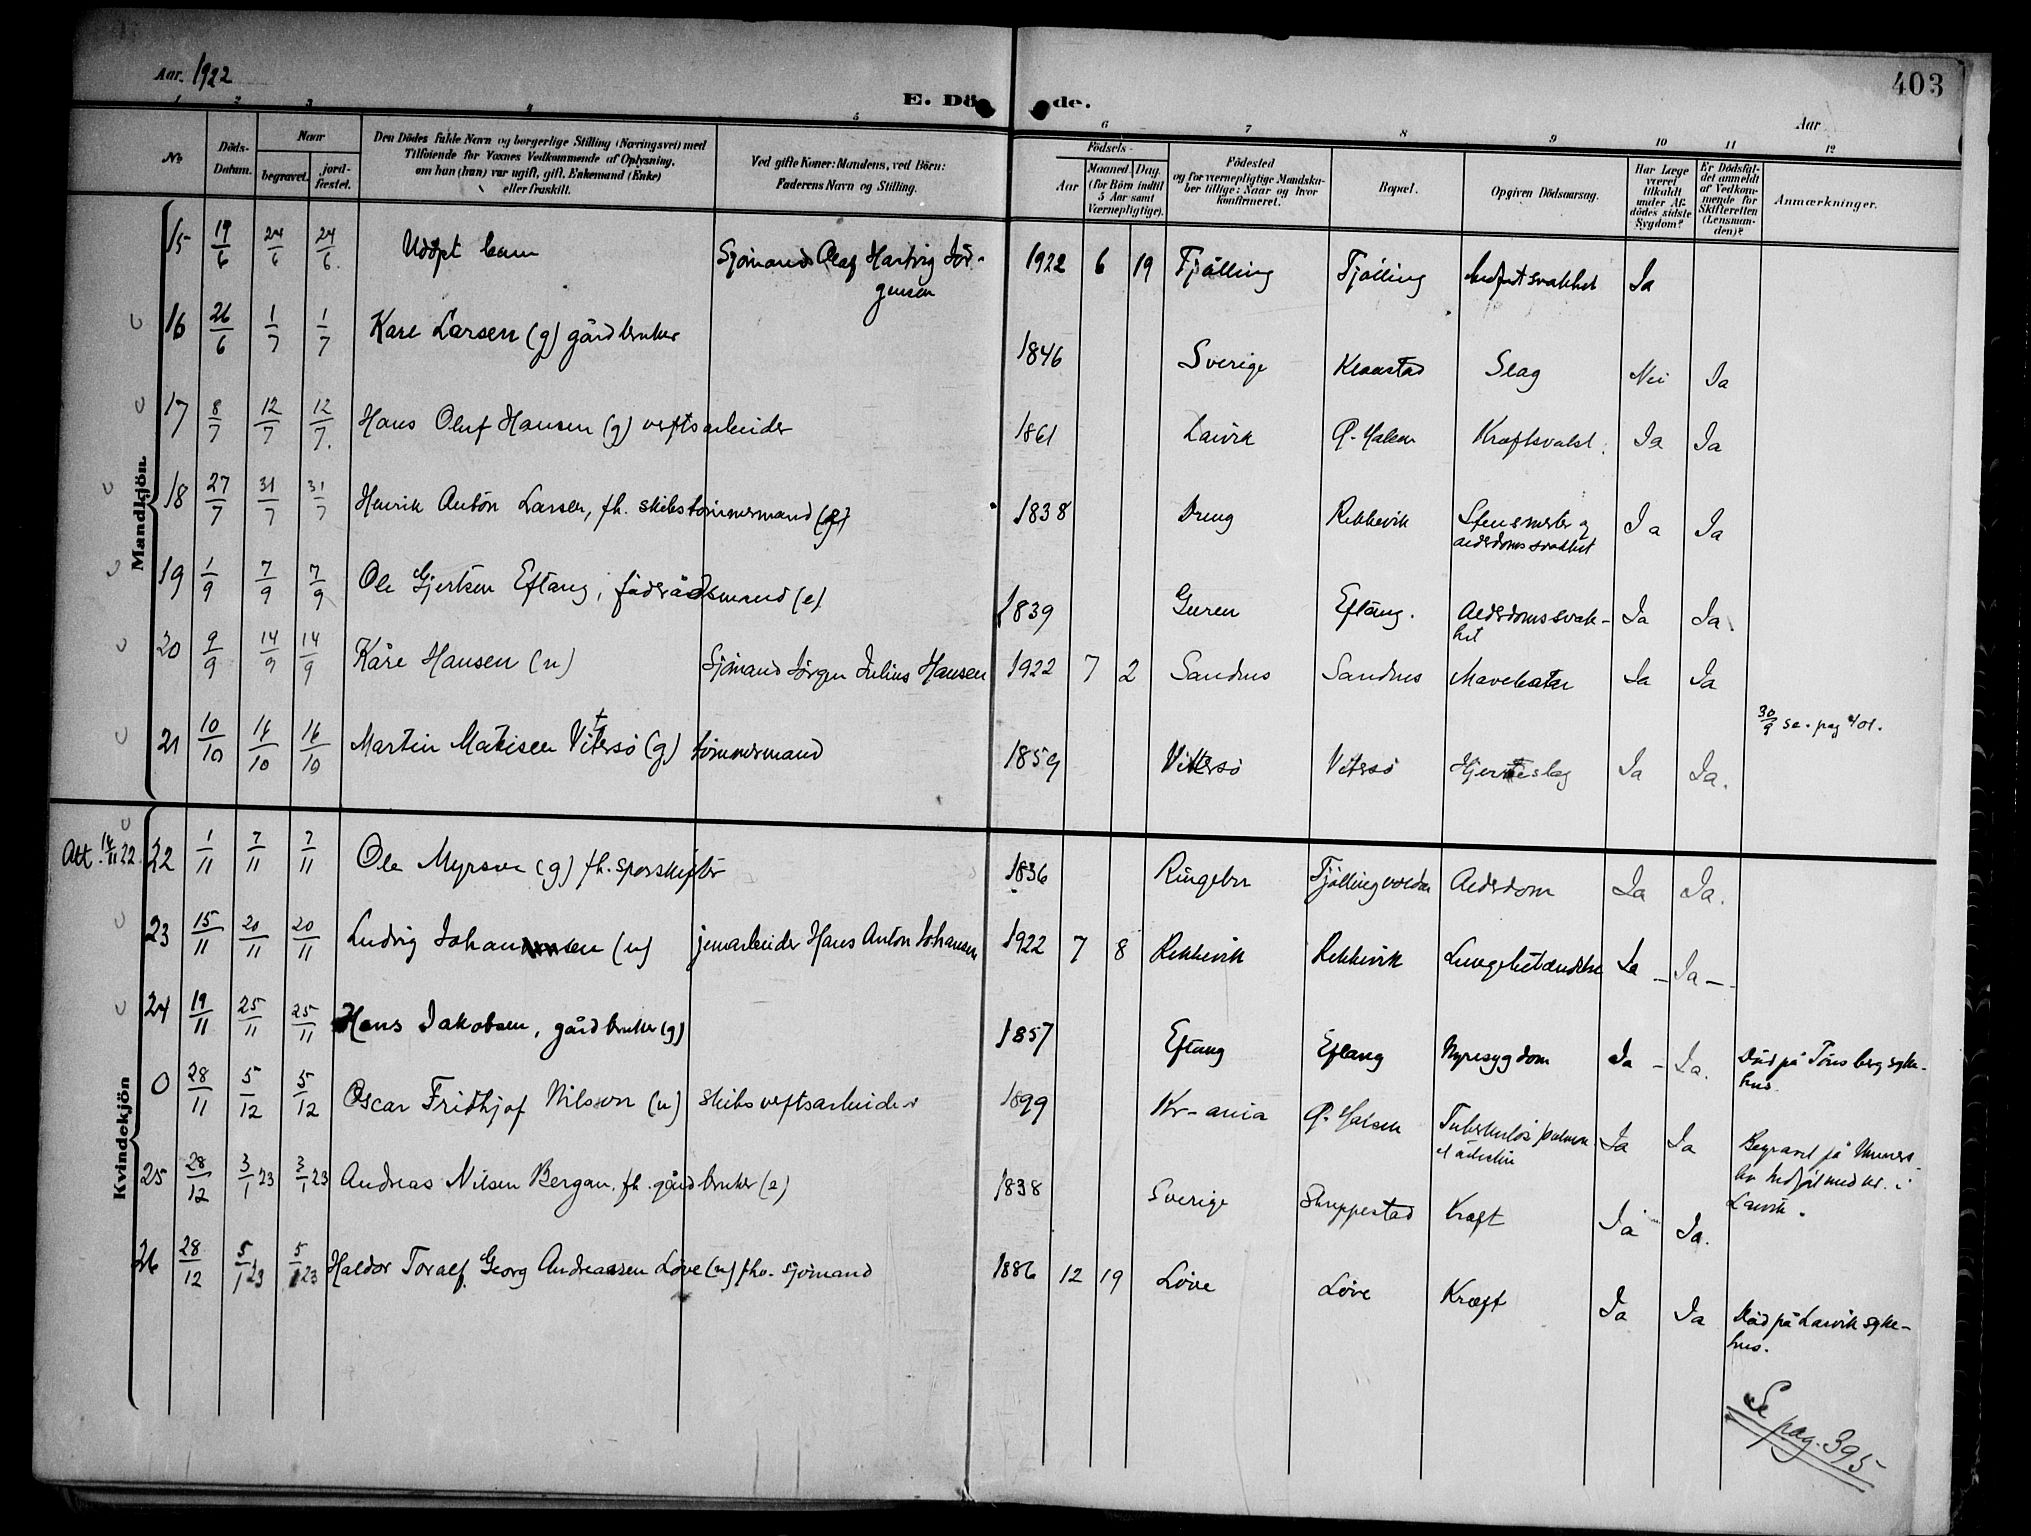 Aar. 1922
403
E. Dö de.
Aar
1 2 3 4 5 6 7 8 9 10 11 12
No
Döds-Datum.
Naar
begravet. jord-fæstet.
Den Dödes fulde Navn og borgerlige Stilling (Næringsvei) med
Tilföiende for Voxnes Vedkommende af Oplysning,
om han (hun) var ugift, gift, Enkemand (Enke)
eller fraskilt.
Ved gifte Koner: Mandens, ved Börn:
Faderens Navn og Stilling.
Födsels-
Aar Maaned. Dag.
(for Börn indtil
5 Aar samt
Værnepligtige).
Födested
og for værnepligtige Mandska-
ber tillige: Naar og hvor
konfirmeret.
Bopæl.
Opgiven Dödsaarsag.
Har Læge
været
tilkaldt
under Af-
dödes sidste
Sygdom?
Er Dödsfal-
det anmeldt
af Vedkom-
mende for
Skifteretten
(Lensman-
den)?
Anmærkninger.
Mandkjön.
15 19/6 24/6 24/6. Udöpt barn Sjömand Olaf Hartvig Jör-
gensen 1922 6 19 Tjölling Tjölling Medfödt svakhet Ja
16 26/6 1/7 1/7 Kare Larsen (g) gårdbruker 1846 Sverige Klaastad Slag Nei Ja
17 8/7 12/7 12/7. Hans Oluf Hansen (g) verftsarbeider 1861 Larvik Ø. Halsen Kræftsvulst. Ja Ja
18 27/7 31/7 31/7 Henrik Anton Larsen, fh. skibstömmermand (g) 1838 Dreng Rekkevik Stensmerter og
alderdomssvakhet Ja Ja
19 1/9 7/9 7/9 Ole Gjertsen Eftang, föderådsmand (e) 1839 Guren Eftang. Alderdomssvak-
het Ja Ja
20 9/9 14/9 14/9 Kåre Hansen (u) Sjömand Jörgen Julius Hansen 1922 7 2 Sandnes Sandnes Mavekatar Ja Ja
30/9 se. pag 401.
21 10/10 16/10 16/10 Martin Matisen Vittersö (g) tömmermand 1859 Vittersö Vittersö Hjerteslag Ja Ja.
Kvindekjön
Att. 14/11 22. 22 1/11 7/11 7/11 Ole Myrsve (g) fh. sporskifter 1836 Ringebu Tjöllingvolden Alderdom Ja Ja.
23 15/11 20/11 20/11 Ludvig Johansen (u) jernarbeider Hans Anton Johansen 1922 7 8 Rekkevik Rekkevik Lungebetændelse Ja - Ja -
24 19/11 25/11 25/11 Hans Jakobsen, gårdbruker (g) 1857 Eftang Eftang Nyresygdom Ja - Ja. Död på Tönsberg syke-
hus.
0 28/11 5/12 5/12 Oscar Fridtjof Nilsson (u) skibsverftsarbeider 1899 Kr-ania Ø. Halsen Tuberkulos pulmon
et intestin Ja Ja Begravet på Unders-
bo hedföl med ur. i
Larvik.
25 28/12 3/1 23 3/1 23 Andreas Nilsen Bergan, fh. gårdbruker (e) 1838 Sverige Skreppestad Kræft Ja Ja.
26 28/12 5/1 23 5/1 23 Haldor Toralf Georg Andreassen Löve (u) fhv. sjömand 1886 12 19 Löve Löve Kræft Ja Ja Död på Larvik syke-
hus.
Se pag. 395